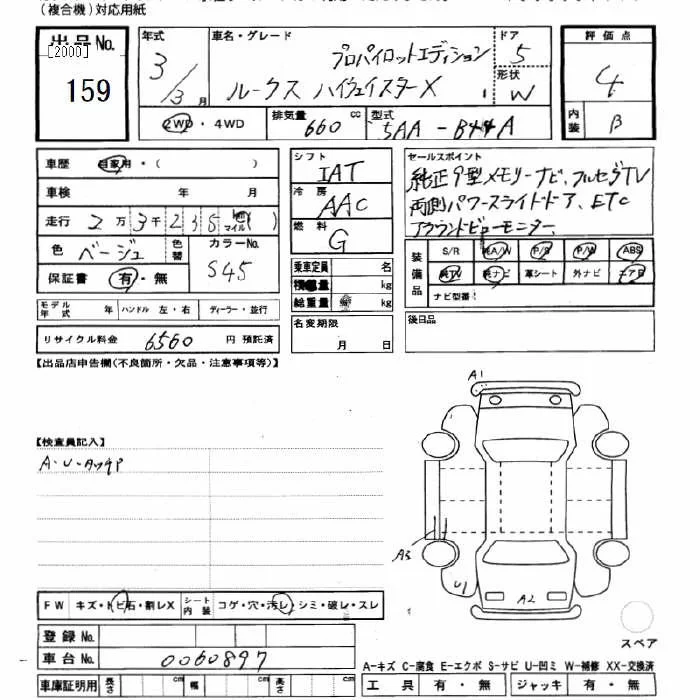 (複合機)対応用紙
出品No.
[2000]
159
年式
3/3月
車名・グレード
プロパイロットエディション
ルークス ハイウェイスターX
ドア
5
形状
W
評価点
4
内装
B
2WD・4WD
排気量
660 cc
型式
5AA-B44A
車歴 自家用・( )
車検 年 月
走行 2万3千235 km マイル ( )
色 ベージュ
色替
カラーNo.
S45
保証書 有・無
モデル年式 年 ハンドル 左・右 ディーラー・並行
リサイクル料金 6560 円 預託済
シフト
IAT
冷房
AAC
燃料
G
乗車定員 名
積載量 kg
総重量 kg
名変期限
月 日
セールスポイント
純正9型メモリーナビ、フルセグTV
両側パワースライドドア、ETC
アラウンドビューモニター、
装備品
S/R 純A/W P/S P/W ABS
純TV 純ナビ 革シート 外ナビ エアB
ナビ型番:
後日品
【出品店申告欄(不良箇所・欠品・注意事項等)】
【検査員記入】
A・U・AッチP
A1
A3
U1
A2
スペア
FW キズ・トビ石・割レX シート内装 コゲ・穴・汚レ・シミ・破レ・スレ
登録No.
車台No. 0060897
車庫証明用 長さ cm 幅 cm 高さ cm
A-キズ C-腐食 E-エクボ S-サビ U-凹ミ W-補修 XX-交換済
工具 有・無 ジャッキ 有・無